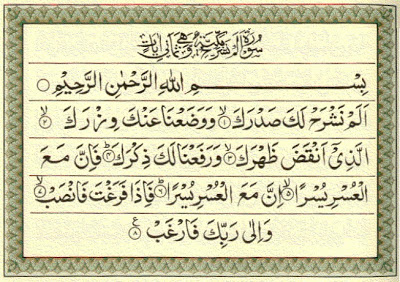 سُوْرَةُ اَلَمْ نَشْرَحْ مَكِّيَّةٌ وَّهِيَ ثَمَانِيْ اٰيَاتٍ
بِسْمِ اللهِ الرَّحْمٰنِ الرَّحِيْمِ ○
اَلَمْ نَشْرَحْ لَكَ صَدْرَكَ ۙ﴿۱﴾ وَوَضَعْنَا عَنْكَ وِزْرَكَ ۙ﴿۲﴾
الَّذِيْٓ اَنْقَضَ ظَهْرَكَ ۙ﴿۳﴾ وَرَفَعْنَا لَكَ ذِكْرَكَ ؕ﴿۴﴾ فَاِنَّ مَعَ
الْعُسْرِ يُسْرًا ۙ﴿۵﴾ اِنَّ مَعَ الْعُسْرِ يُسْرًا ؕ﴿۶﴾ فَاِذَا فَرَغْتَ فَانْصَبْ ۙ﴿۷﴾
وَاِلٰى رَبِّكَ فَارْغَبْ ﴿۸﴾ ع